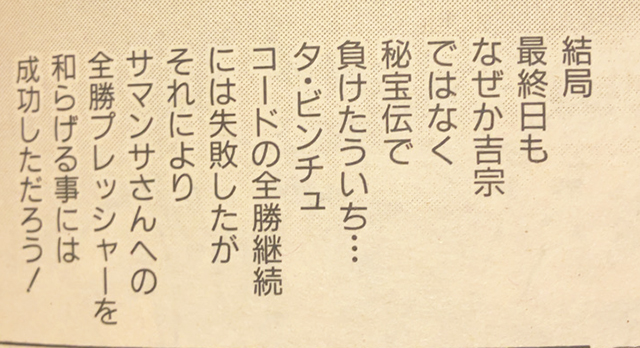 結局
最終日も
なぜか吉宗
ではなく
秘宝伝で
負けたういち…
タ・ビンチュ
コードの全勝継続
には失敗したが
それにより
サマンサさんへの
全勝プレッシャーを
和らげる事には
成功しただろう!